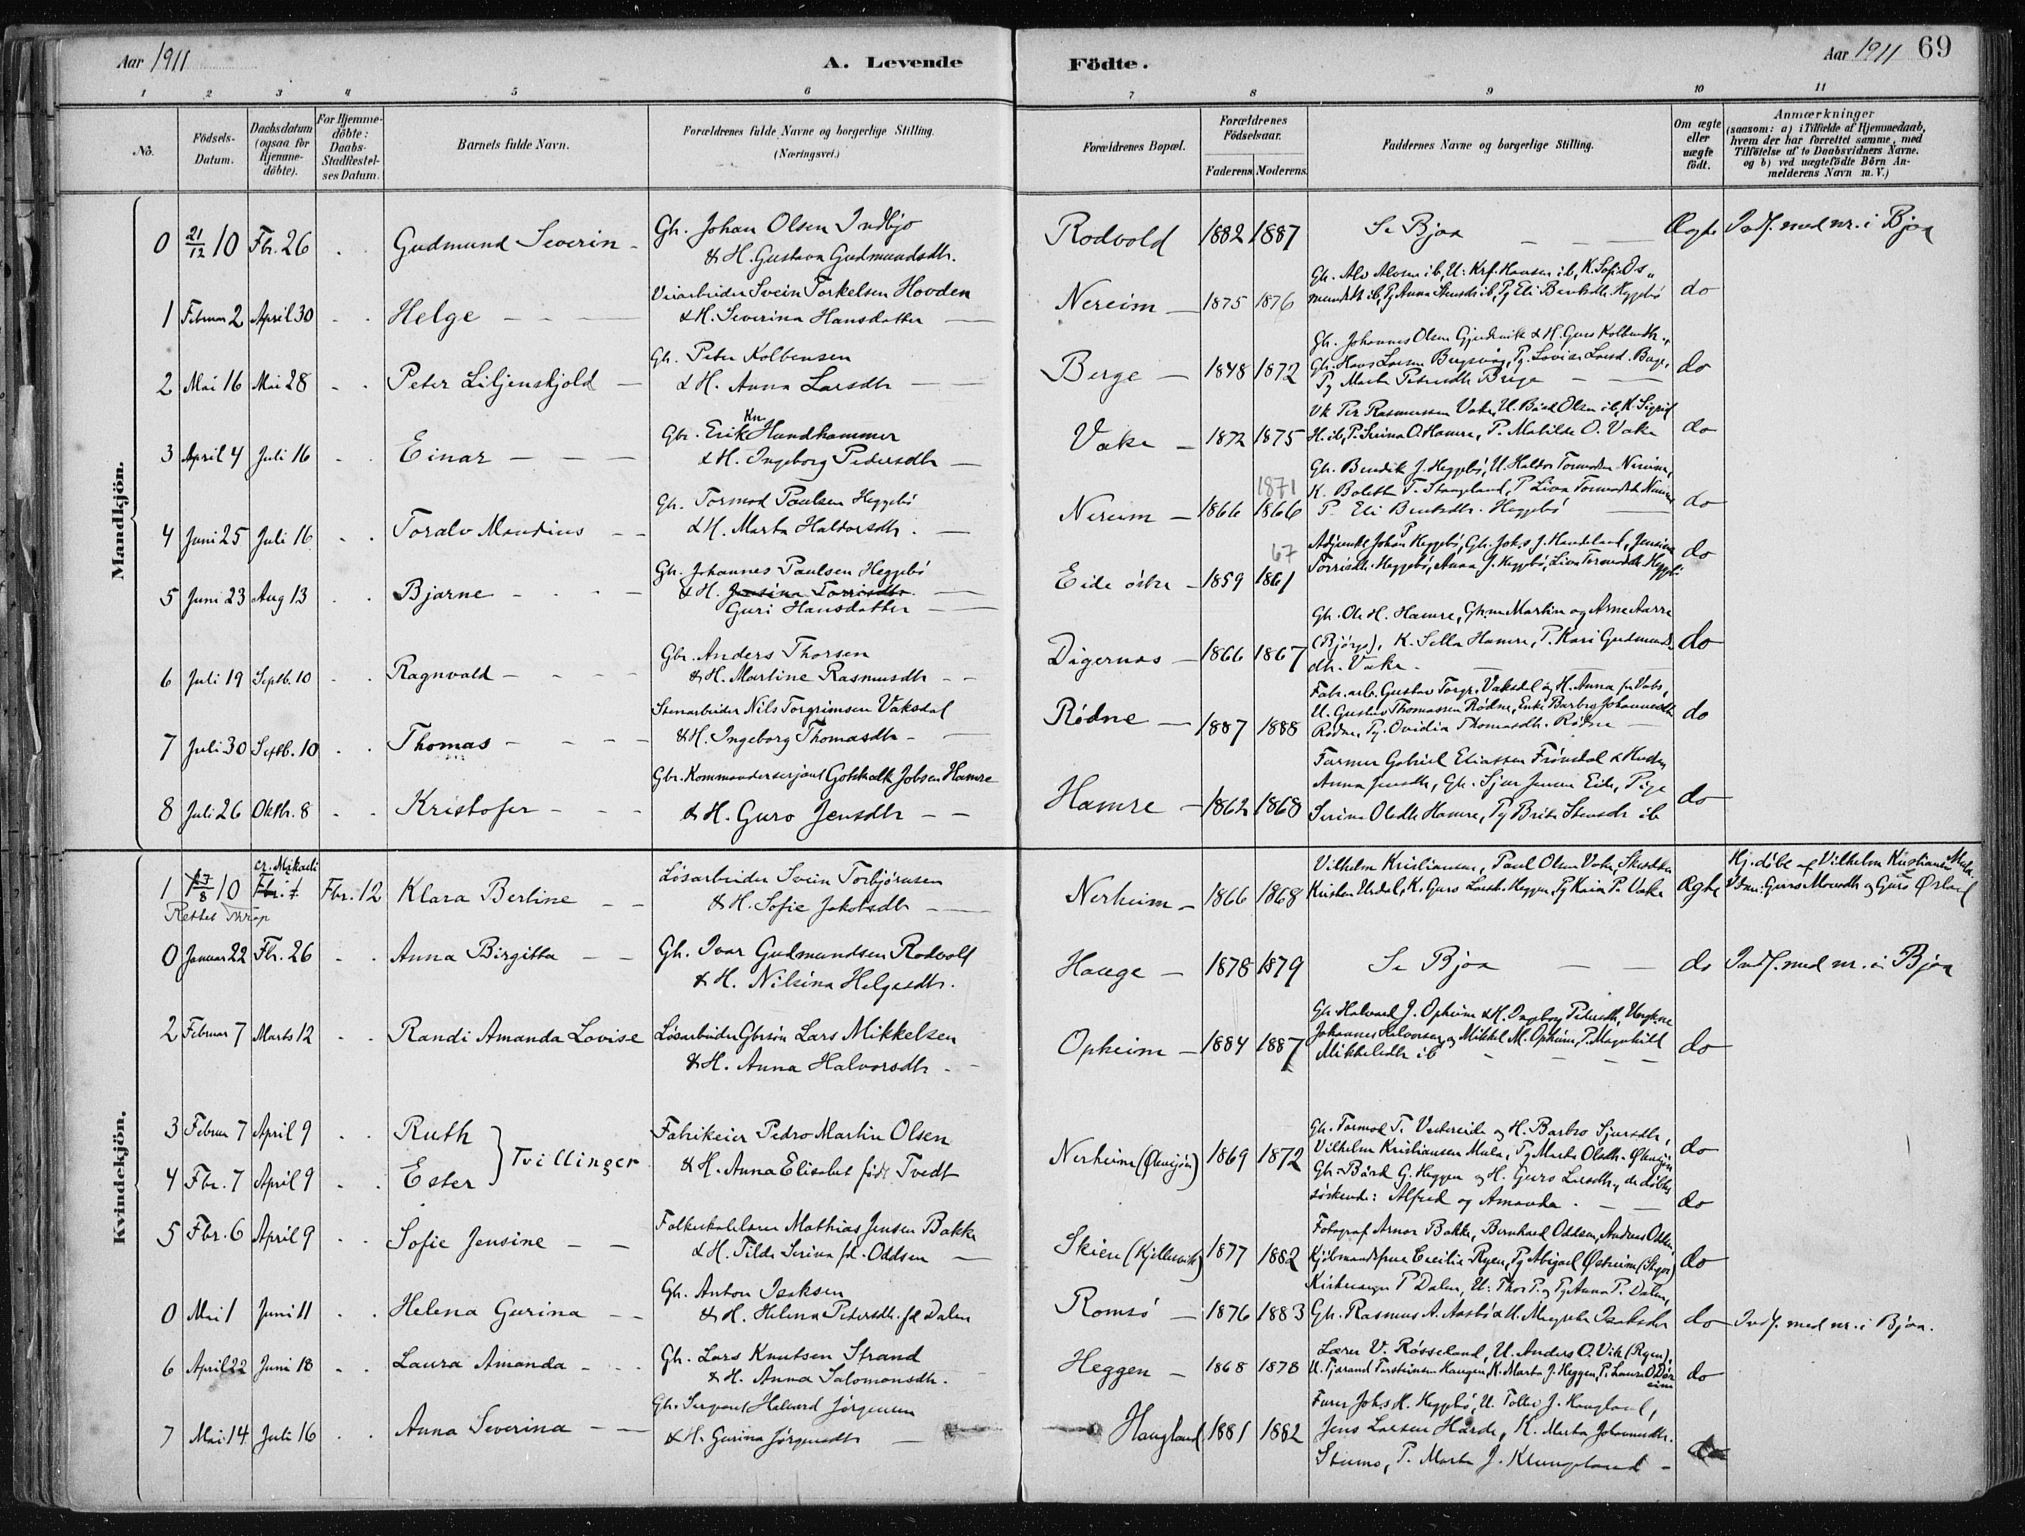 Aar 1911
A. Levende
Födte.
Aar 1911 69
1 2 3 4 5 6 7 8 9 10 11
No.
Födsels-Datum.
Daabsdatum (ogsaa for Hjemmedöbte).
For Hjemmedöbte: Daabs-Stadfæstelses Datum.
Barnets fulde Navn.
Forældrenes fulde Navne og borgerlige Stilling. (Næringsvei.)
Forældrenes Bopæl.
Forældrenes Födselsaar.
Faderens. Moderens.
Faddernes Navne og borgerlige Stilling.
Om ægte eller uægte födt.
Anmærkninger
(saasom: a) i Tilfælde af Hjemmedaab, hvem der har forrettet samme, med Tilföielse af to Daabsvidners Navne. og b) ved uægtefödte Börn Anmelderens Navn m. V.)
Mandkjön.
0 21/12 10 Fbr. 26 Gudmund Severin Gh. Johan Olsen Indbjo
& H. Gustava Gudmundsdtr. Rodvold 1882 1887 Se Bjoa Ægte Indf. med nr. i Bjoa
1 Februar 2 April 30 Helge Veiarbeider Svein Torkelsen Hovden
& H. Severina Hansdatter Nereim 1875 1876 Gh. Alv Alvsen ib, U. Krf. Hansen ib, K. Sofie Os„
mundsdtr ib, Pg Anna Stensdtr ib, Pg Eli Bentsdtr. Heggebö do
2 Mai 16 Mai 28 Peter Liljenskjold Gh. Peter Kolbensen
& H. Anna Larsdtr Berge 1848 1872 Gh. Johannes Olsen Gjerdevik & H. Guro Kolbensdtr.,
Gh. Hans Larsen Bergsvåg, Pg. Lovise Larsd. Berge,
Pg Marta Petersdtr Berge do
3 April 4 Juli 16 Einar Gbr. Erik Kn. Handkammer
& H. Ingeborg Pedersdtr Vake 1872 1875 Vk Per Rasmussen Vake, U. Bård Olsen ib, K. Sigrid
H. ib, P. Serina O. Hamre, P. Matilde O. Vake do
4 Juni 25 Juli 16 Toralv Mandius Gh. Tormod Paulsen Heggebö
& H. Marta Haldorsdtr. Nereim 1866 1866 1871 Gh. Bendik J. Heggebö, U. Haldor Tormodsen Nereim,
K. Bolette T. Stangeland, P Liva Tormodsdtr Nereim
P. Eli Bentsdtr. Heggebö do
5 Juni 23 Aug 13 Bjarne Gh. Johannes Paulsen Heggebö
& H. Jensina Torrisdtr.
Guri Hansdatter Eide östre 1859 1861 67 Adjunkt Johan P Heggebö, Gh. Johs J. Handeland, Jensine
Torrisdtr Heggebö, Anna J. Heggebö, Liva Tormodsdtr Heggebö do
6 Juli 19 Septb. 10 Ragnvald Gbr. Anders Thorsen
& H. Martine Rasmusdtr Digernæs 1866 1867 Gh. Ole H. Hamre, Martin og Arne Aarre
(Bjørgo), K. Sella Hamre, P. Kari Gudmunds
dtr. Vake. do
7 Juli 30 Septb. 10 Thomas Stenarbeider Nils Torgrimsen Vaksdal
& H. Ingeborg Thomasdtr Rødne 1887 1888 Fabr. arb. Gustav Torgr. Vaksdal og H. Anna
U. Gustav Thomassen Rødne, Enke Barbro Johannesdtr
Rødne, Pg. Ovidia Thomasdtr. Rødne do
8 Juli 26 Oktbr. 8 Kristofer Gbr. Kommandersersjant Gotskalk Jobsen Hamre
& H. Guro Jensdtr Hamre 1862 1868 Farmer Gabriel Eliassen Frönsdal & Husten
Anna Jensdtr, Gh. Sjur Jensen Eide, Pige
Serina Olsdtr Hamre, Pg Brita Stensdtr ib do
Kvindekjön.
1 27/8 10 cr. Mikaeli Fbr. Fbr. 12 Klara Berline Løsarbeider Svein Torbjørnsen
& H. Sofie Jakobsdtr Nerheim 1866 1868 Vilhelm Kristiansen, Paul Olsen Vake,
Kristen Urdal, K. Guro Larsdtr Heggen, Pg Kaia P. Vake Ægte Hj. döbt af Vilhelm Kristiansen Mula.
Vidner: Guro og Guro Ørland
Rettet
0 Januar 22 Fbr. 26 Anna Birgitta Gh. Ivar Gudmundsen Rodvolt
& H. Nilsina Helgesdtr. Hauge 1878 1879 Se Bjoa do Indf. med nr. i Bjoa
2 Februar 7 Marts 12 Randi Amanda Lovise Løsarbeider Gbrsøn Lars Mikkelsen
& H. Anna Halvorsdtr Opheim 1884 1887 Gh. Halvard J. Opheim & H. Ingeborg Pedersdtr, Ungkne
Johannes Halvorsen og Mikkel M. Opheim, P. Magnhild
Mikkelsdtr ib do
3 Februar 7 April 9 Ruth
4 Fbr. 7 April 9 Ester
Tvillinger
Fabrikeier Pedro Martin Olsen
& H. Anna Elisabet født Tvedt Nerheim (Ølensjøen) 1869 1872 Gh. Tormod T. Vestereide og H. Barbro Sjursdtr,
Vilhelm Kristiansen Mula, Pg Marta Olsdtr. Ølensjøen
Gh. Bård G. Heggen og H. Guro Larsdtr, de døbtes
søskende: Alfred og Amanda. do
do
5 Fbr. 6 April 9 Sofie Jensine Folkeskolelærer Mathias Jensen Bakke
& H. Tilda Serina fd. Oddsen Skien (Kjellevik) 1877 1882 Fotograf Arnor Bakke, Bernhard Oddsen, Andreas Odden,
Kjöbmandsfrue Cecilia Ryen, Pg Abigael Østreim (Skjold) do
0 Mai 1 Juni 11 Helena Gurina Gh. Anton Isaksen
& H. Helena Pedersdtr. fd Dalen Romsö 1876 1883 Kirkesanger P Dalen, U. Thor P. og Pg Anna P. Dalen,
Gh. Rasmus A. Aasbö & H. Isaksdtr do Indf. med nr. i Bjoa.
6 April 22 Juni 18 Laura Amanda Gh. Lars Knutsen Strand
& H. Anna Salomonsdtr. Heggen 1868 1878 Lærer V. Røsseland, U. Anders O. Vik,
U. Tjærand Torsteinsen Haugen, K. Marta J. Heggen, P. Laura O. Dör
eim do
7 Mai 14 Juli 16 Anna Severina Gh. Sergeant Halvard Jørgensen
& H. Gurina Jørgensdtr Haugland 1881 1882 Furer Johs H. Heggebö, U. Tollei J. Haugland,
Jens Larsen Hårde, K. Marta Johannesdtr.
Stumo, P. Marta J. Klungeland do